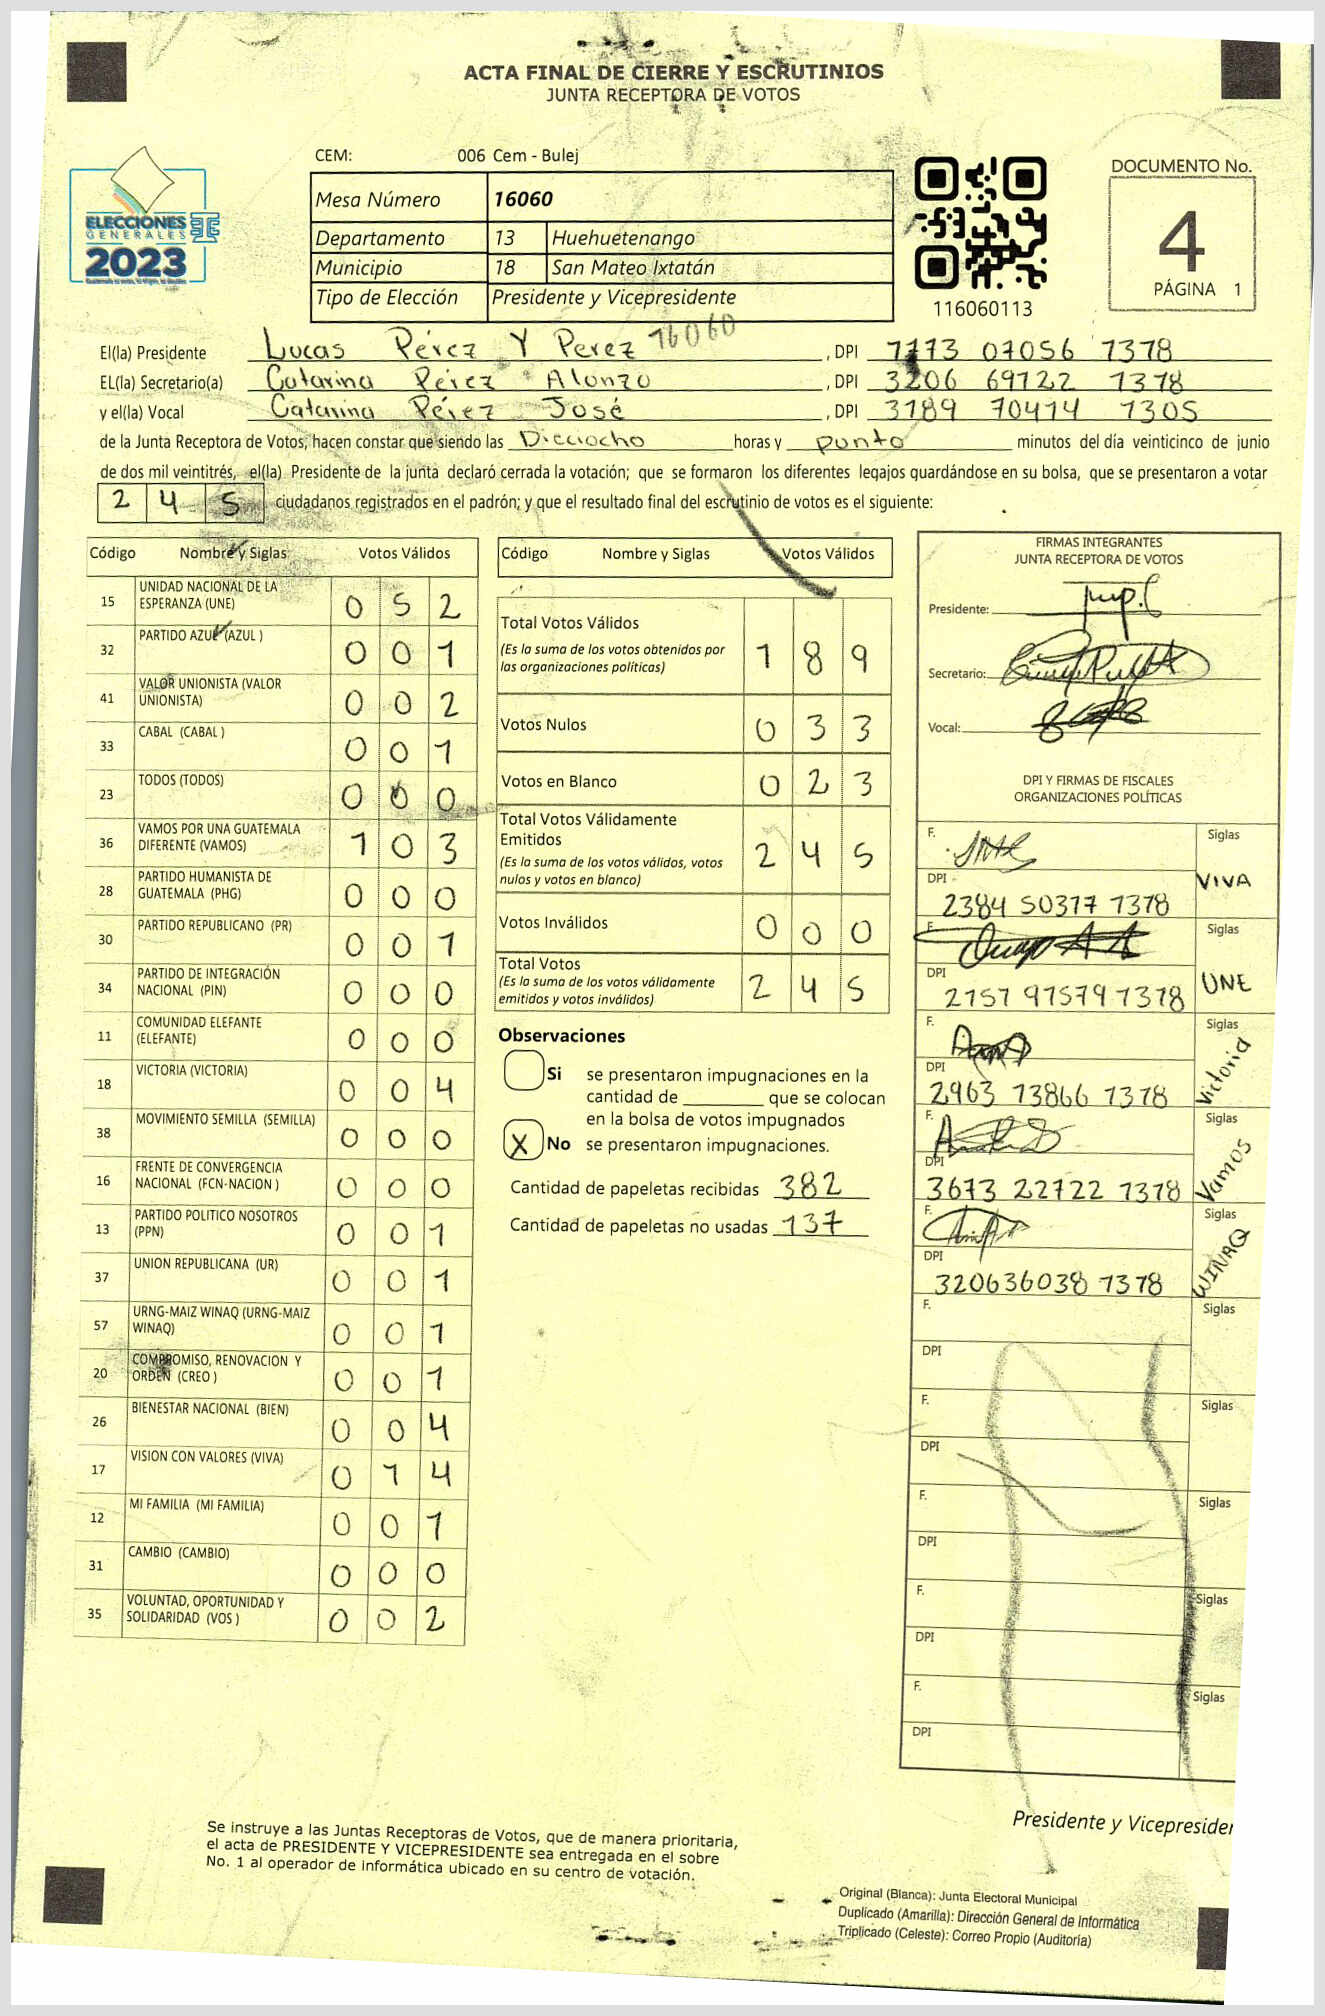 ACTA FINAL DE CIERRE Y ESCRUTINIOS
JUNTA RECEPTORA DE VOTOS
ELECCIONES
GENERALES
2023
CEM: 006 Cem - Bulej
Mesa Número 16060
Departamento 13 Huehuetenango
Municipio 18 San Mateo Ixtatán
Tipo de Elección Presidente y Vicepresidente
116060113
DOCUMENTO No.
4
PÁGINA 1
16060
El(la) Presidente Lucas Pérez Y Perez , DPI 7773 07056 1378
EL(la) Secretario(a) Catarina Pérez Alonzo , DPI 3206 69722 1378
y el(la) Vocal Catarina Pérez José , DPI 3789 70414 1305
de la Junta Receptora de Votos, hacen constar que siendo las Dieciocho horas y punto minutos del día veinticinco de junio
de dos mil veintitrés, el(la) Presidente de la junta declaró cerrada la votación; que se formaron los diferentes legajos guardándose en su bolsa, que se presentaron a votar
2 4 5 ciudadanos registrados en el padrón; y que el resultado final del escrutinio de votos es el siguiente:
Código Nombre y Siglas Votos Válidos
15 UNIDAD NACIONAL DE LA ESPERANZA (UNE) 0 5 2
32 PARTIDO AZUL (AZUL ) 0 0 1
41 VALOR UNIONISTA (VALOR UNIONISTA) 0 0 2
33 CABAL (CABAL ) 0 0 1
23 TODOS (TODOS) 0 0 0
36 VAMOS POR UNA GUATEMALA DIFERENTE (VAMOS) 1 0 3
28 PARTIDO HUMANISTA DE GUATEMALA (PHG) 0 0 0
30 PARTIDO REPUBLICANO (PR) 0 0 1
34 PARTIDO DE INTEGRACIÓN NACIONAL (PIN) 0 0 0
11 COMUNIDAD ELEFANTE (ELEFANTE) 0 0 0
18 VICTORIA (VICTORIA) 0 0 4
38 MOVIMIENTO SEMILLA (SEMILLA) 0 0 0
16 FRENTE DE CONVERGENCIA NACIONAL (FCN-NACION ) 0 0 0
13 PARTIDO POLITICO NOSOTROS (PPN) 0 0 1
37 UNION REPUBLICANA (UR) 0 0 1
57 URNG-MAIZ WINAQ (URNG-MAIZ WINAQ) 0 0 1
20 COMPROMISO, RENOVACION Y ORDEN (CREO ) 0 0 1
26 BIENESTAR NACIONAL (BIEN) 0 0 4
17 VISION CON VALORES (VIVA) 0 1 4
12 MI FAMILIA (MI FAMILIA) 0 0 1
31 CAMBIO (CAMBIO) 0 0 0
35 VOLUNTAD, OPORTUNIDAD Y SOLIDARIDAD (VOS ) 0 0 2
Código Nombre y Siglas Votos Válidos
Total Votos Válidos 1 8 9
(Es la suma de los votos obtenidos por
las organizaciones políticas)
Votos Nulos 0 3 3
Votos en Blanco 0 2 3
Total Votos Válidamente
Emitidos 2 4 5
(Es la suma de los votos válidos, votos
nulos y votos en blanco)
Votos Inválidos 0 0 0
Total Votos 2 4 5
(Es la suma de los votos válidamente
emitidos y votos inválidos)
Observaciones
Si se presentaron impugnaciones en la
cantidad de ________ que se colocan
en la bolsa de votos impugnados
X No se presentaron impugnaciones.
Cantidad de papeletas recibidas 382
Cantidad de papeletas no usadas 137
FIRMAS INTEGRANTES
JUNTA RECEPTORA DE VOTOS
Presidente:
Secretario:
Vocal:
DPI Y FIRMAS DE FISCALES
ORGANIZACIONES POLÍTICAS
F. Siglas
DPI 2384 50377 1378 VIVA
F. Siglas
DPI 2157 91579 1378 UNE
F. Siglas
DPI 2963 73866 1378 Victoria
F. Siglas
DPI 3673 22722 1378 Vamos
F. Siglas
DPI 320636038 1378 WINAQ
F. Siglas
DPI
F. Siglas
DPI
F. Siglas
DPI
F. Siglas
DPI
F. Siglas
DPI
Presidente y Vicepresider
Se instruye a las Juntas Receptoras de Votos, que de manera prioritaria,
el acta de PRESIDENTE Y VICEPRESIDENTE sea entregada en el sobre
No. 1 al operador de informática ubicado en su centro de votación.
Original (Blanca): Junta Electoral Municipal
Duplicado (Amarilla): Dirección General de Informática
Triplicado (Celeste): Correo Propio (Auditoría)